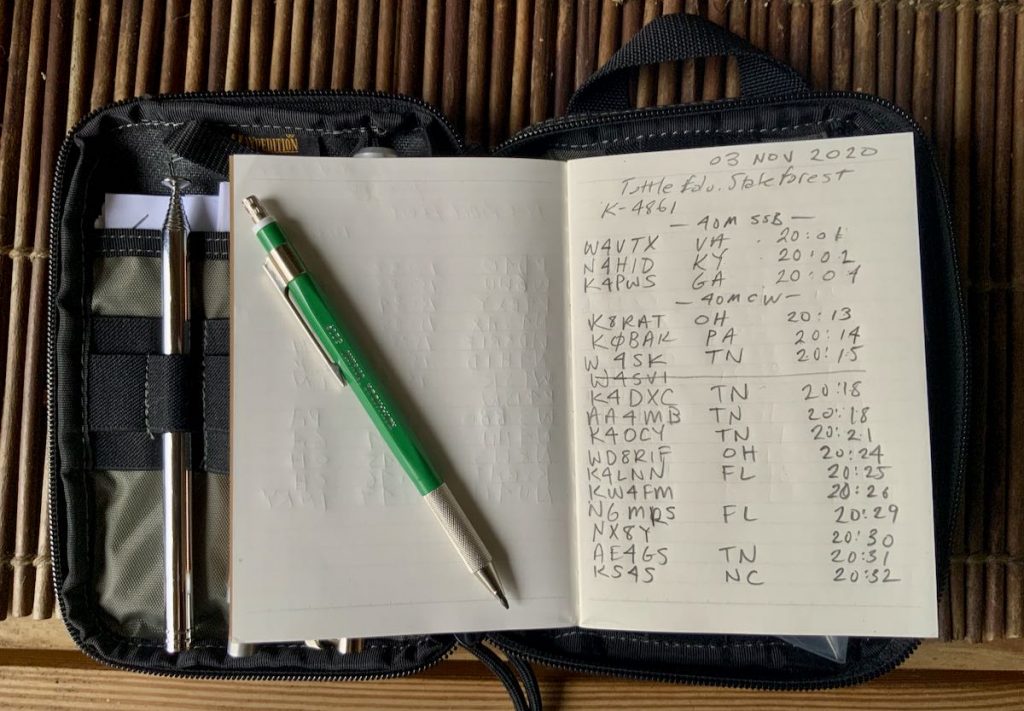 EXPEDITION
03 NOV 2020
Tuttle Edu. State Forest
K-4861
— 40M SSB —
W4VTX VA 20:01
N4HID KY 20:02
K4PWS GA 20:07
— 40M CW —
K8RAT OH 20:13
KØBAK PA 20:14
W4SK TN 20:15
W4SVI
K4DXC TN 20:18
AA4MB TN 20:18
K4OCY TN 20:21
WD8RIF OH 20:24
K4LNN FL 20:25
KW4FM 20:26
N6MRS FL 20:29
NX8Y 20:30
AE4GS TN 20:31
KS4S NC 20:32